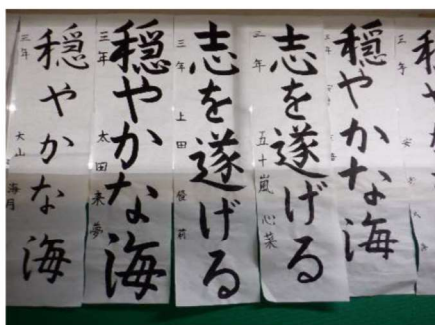 穏やかな海
三年
志を遂げる
三年 五十嵐 心菜
志を遂げる
三年 上田
穏やかな海
三年 太田 来夢
穏やかな海
三年 大山 海月